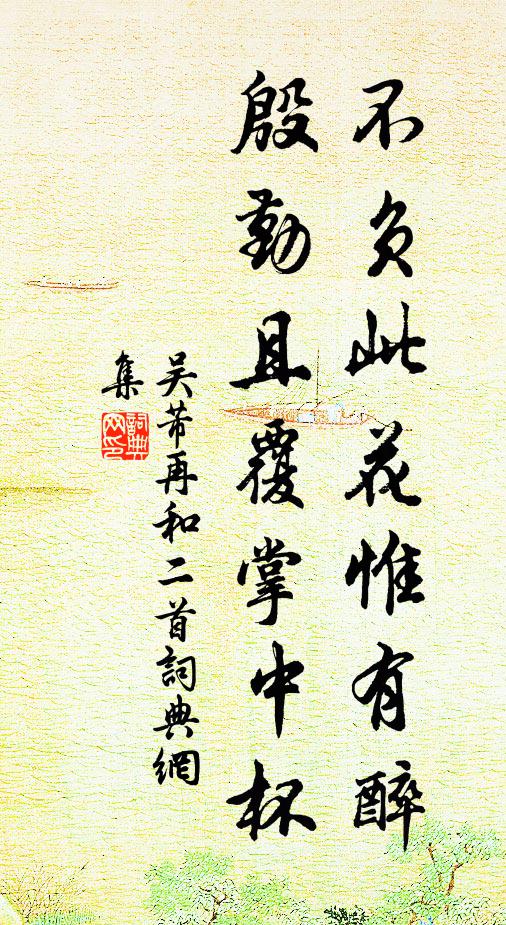 不負此花惟有醉
殷勤且覆掌中杯
吴芾再和二首詞典網
集
詞典
网印